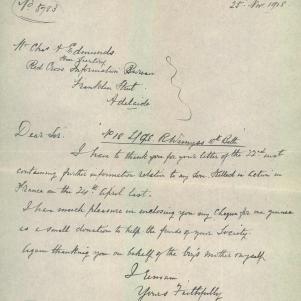 25 Nov. 1918
Mr Chas A Edmunds
Red Cross Information Bureau
Franklin Street
Adelaide
Dear Sir.
I have to thank you for your letter of the 22nd inst
containing further information relative to my Son. Killed in Action in
France on the 24th April last.
I have much pleasure in enclosing you my Cheque for one guinea
as a small donation to help the funds of your Society
Again thanking you on behalf of the boy's mother & myself.
I remain
Yours Faithfully